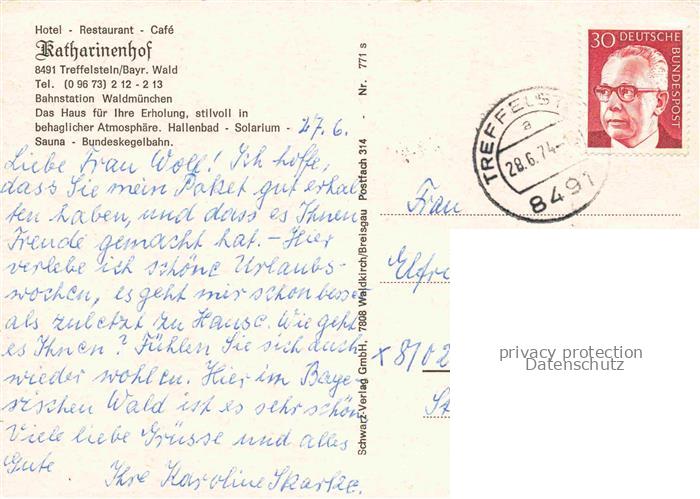 Hotel - Restaurant - Café
Katharinenhof
8491 Treffelstein/Bayr. Wald
Tel. (0 96 73) 2 12 - 2 13
Bahnstation Waldmünchen
Das Haus für Ihre Erholung, stilvoll in
behaglicher Atmosphäre. Hallenbad - Solarium -
Sauna - Bundeskegelbahn.
27.6.
Liebe Frau Woll! Ich hoffe,
dass Sie mein Paket gut erhal
ten haben, und dass es Ihnen
Freude gemacht hat. - Hier
verlebe ich schöne Urlaubs-
wochen, es geht mir schon besser
als zuletzt zu Hause. Wie geht
es Ihnen? Fühlen Sie sich auch
wieder wohler. Hier im Baye-
rischen Wald ist es sehr schön
Viele liebe Grüsse und alles
Gute Ihre Karoline
Schwarz-Verlag GmbH, 7808 Waldkirch/Breisgau Postfach 314 - Nr. 771 s
30 DEUTSCHE BUNDESPOST
TREFFELST
a
28.6.74
8491
Frau
Elfre
x 8102
St
privacy protection
Datenschutz